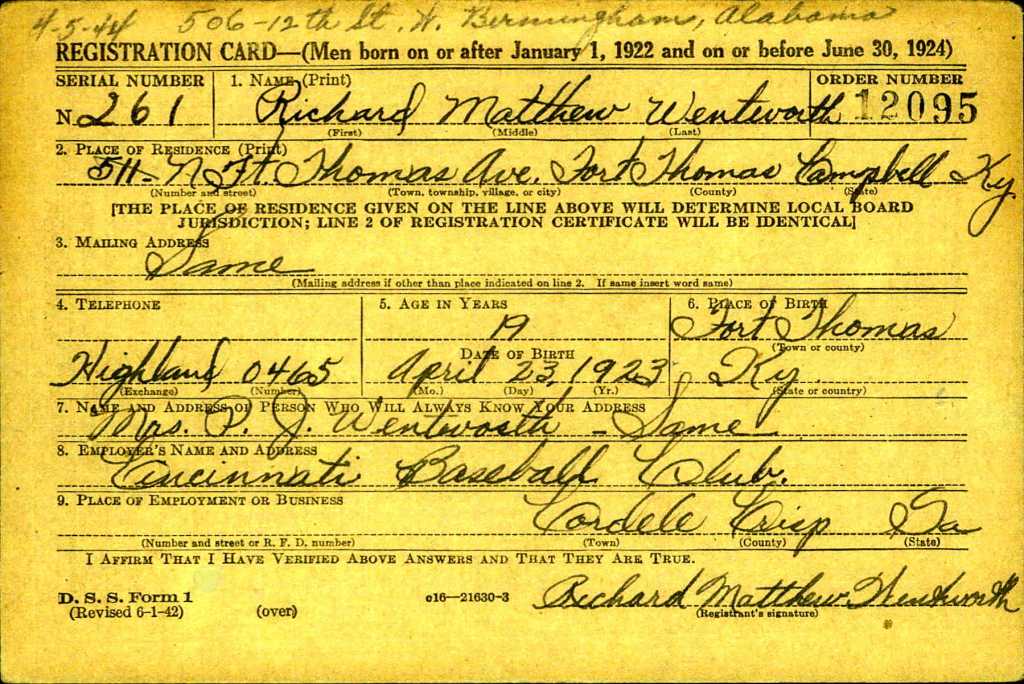 4-5-44 506-12th St. N. Bermingham, Alabama
REGISTRATION CARD—(Men born on or after January 1, 1922 and on or before June 30, 1924)
SERIAL NUMBER 1. NAME (Print) ORDER NUMBER
N. 261 Richard Matthew Wentworth 12095
(First) (Middle) (Last)
2. PLACE OF RESIDENCE (Print)
511- N. Ft. Thomas Ave. Fort Thomas Campbell Ky
(Number and street) (Town, township, village, or city) (County) (State)
[THE PLACE OF RESIDENCE GIVEN ON THE LINE ABOVE WILL DETERMINE LOCAL BOARD
JURISDICTION; LINE 2 OF REGISTRATION CERTIFICATE WILL BE IDENTICAL]
3. MAILING ADDRESS
Same
(Mailing address if other than place indicated on line 2. If same insert word same)
4. TELEPHONE 5. AGE IN YEARS 6. PLACE OF BIRTH
19 Fort Thomas
DATE OF BIRTH (Town or county)
Highland 0465 April 23, 1923 Ky.
(Exchange) (Number) (Mo.) (Day) (Yr.) (State or country)
7. NAME AND ADDRESS OF PERSON WHO WILL ALWAYS KNOW YOUR ADDRESS
Mrs. P. J. Wentworth - Same
8. EMPLOYER'S NAME AND ADDRESS
Cincinnati Baseball Club.
9. PLACE OF EMPLOYMENT OR BUSINESS
Cordele Crisp Ga
(Number and street or R. F. D. number) (Town) (County) (State)
I AFFIRM THAT I HAVE VERIFIED ABOVE ANSWERS AND THAT THEY ARE TRUE.
D. S. S. Form 1
(Revised 6-1-42) (over) c16—21630-3 Richard Matthew Wentworth
(Registrant's signature)